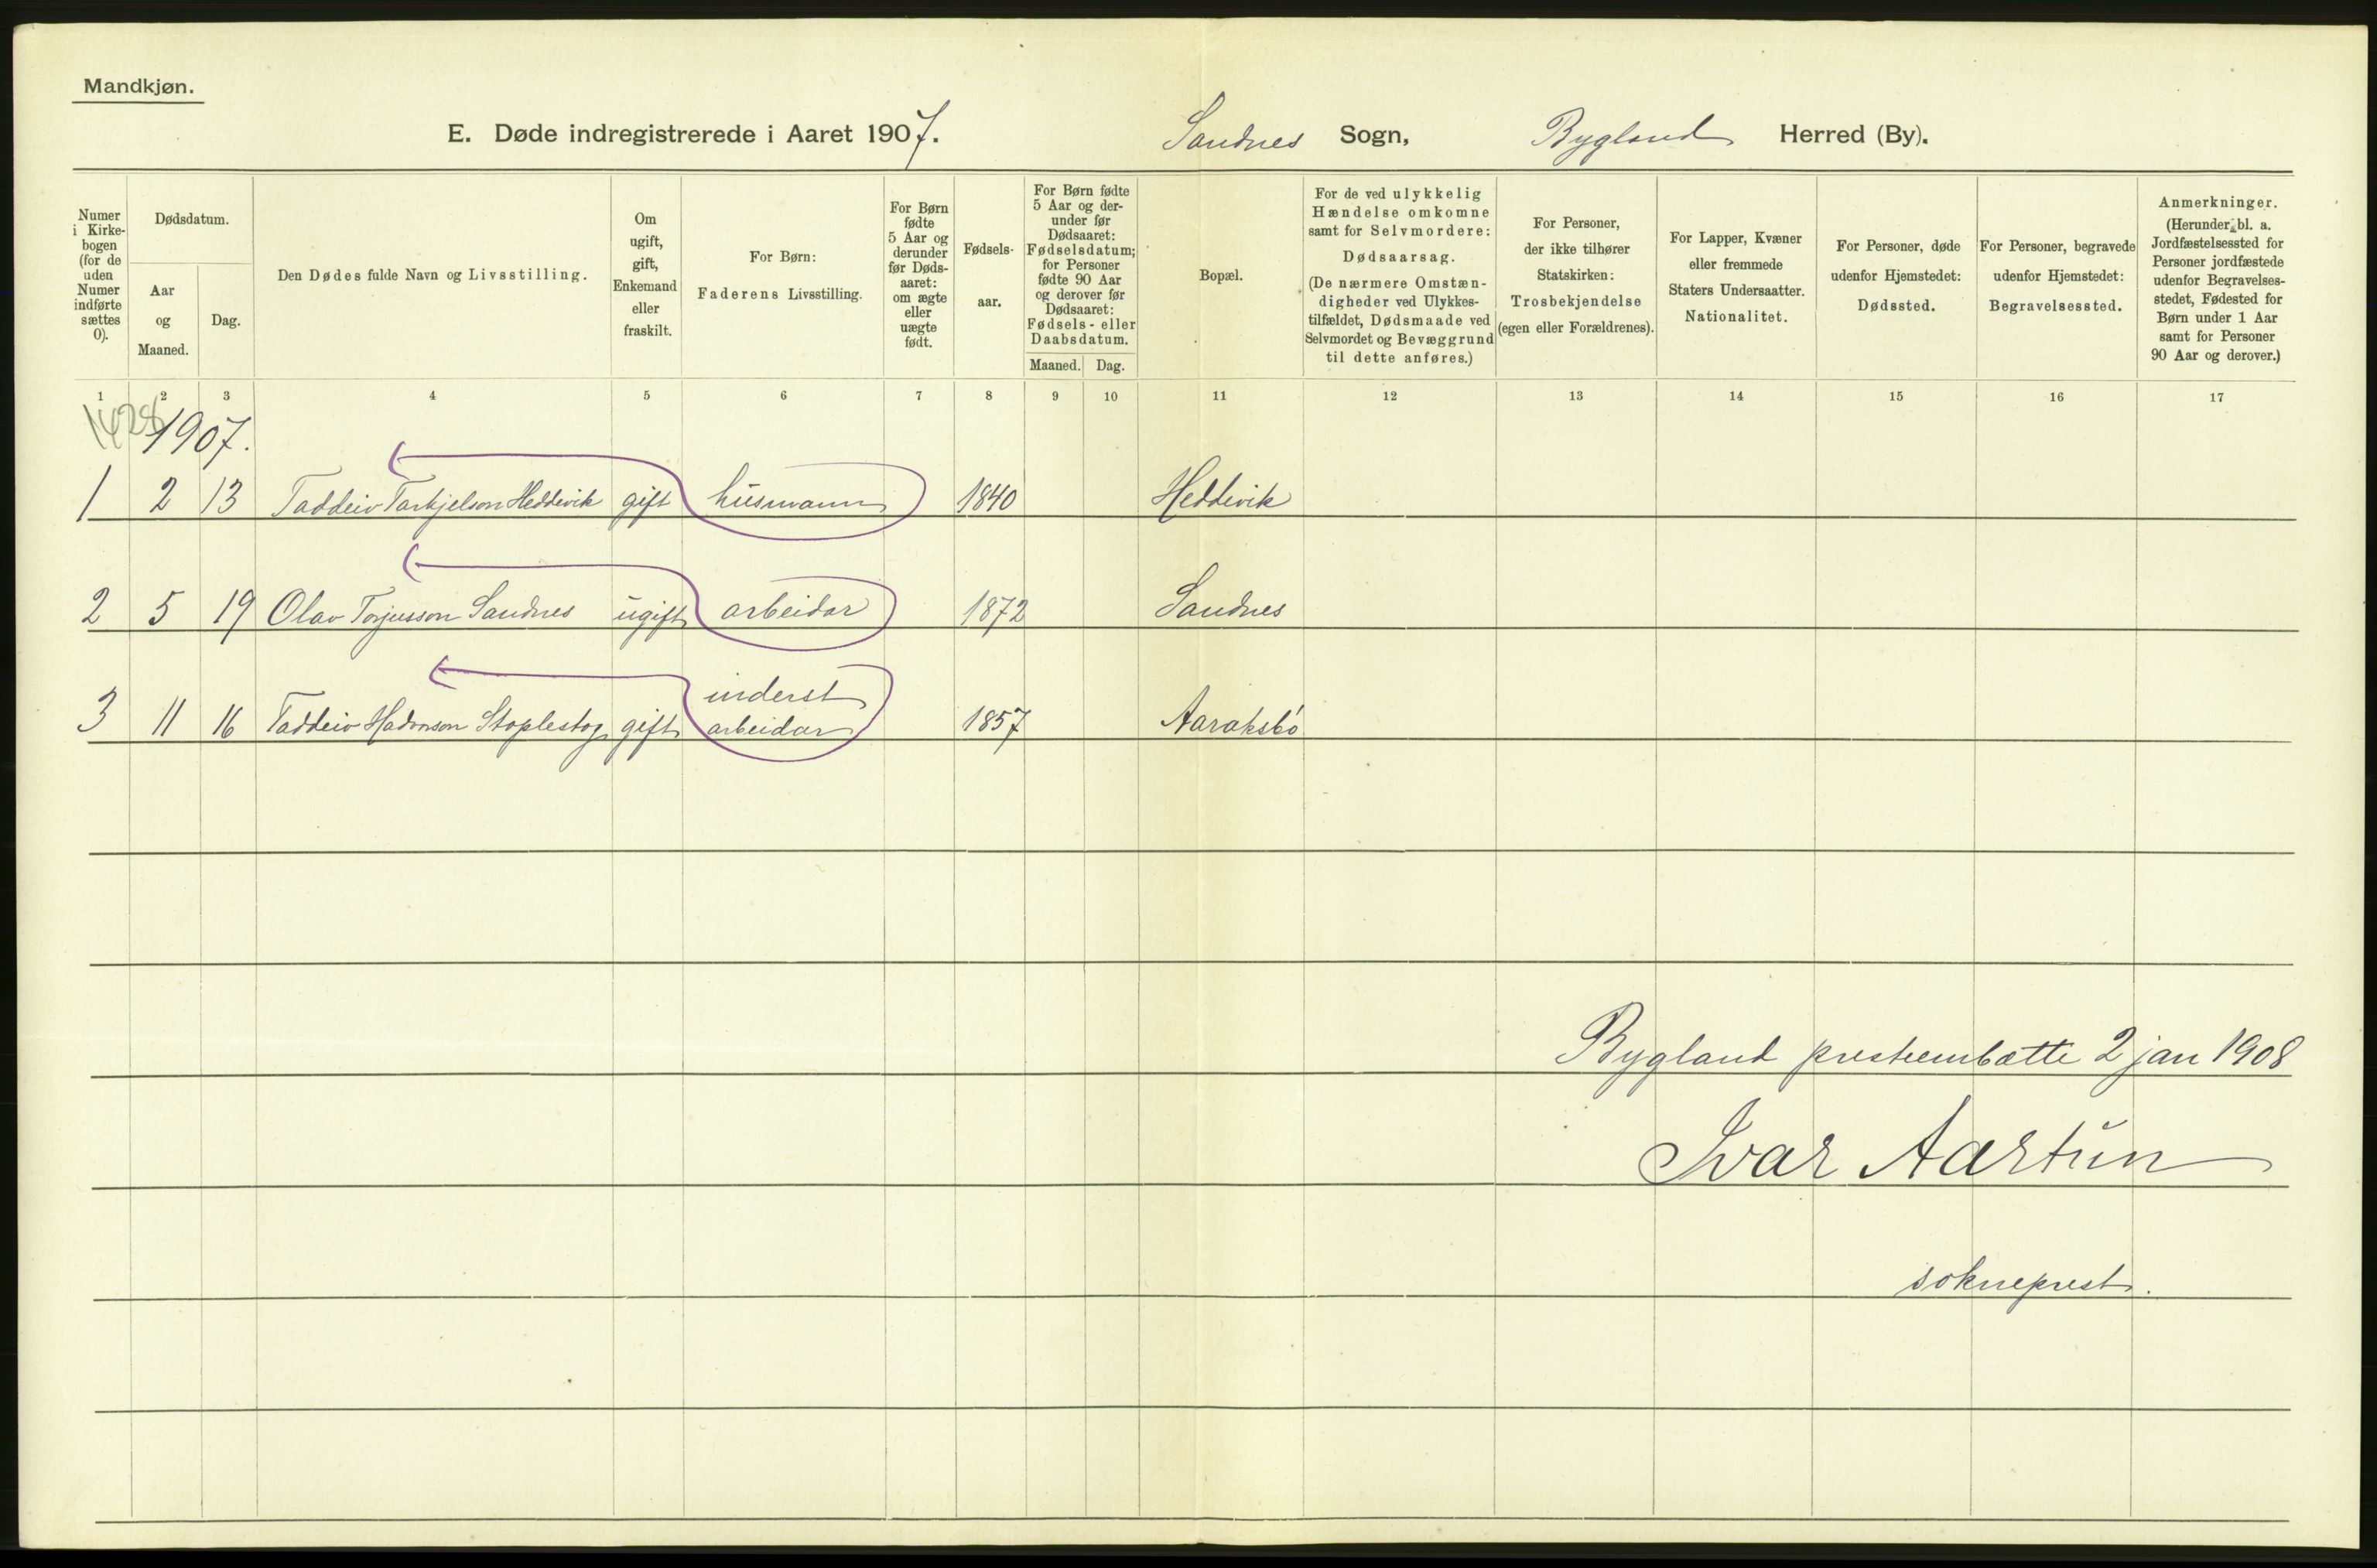 Mandkjøn.
E. Døde indregistrerede i Aaret 1907. Sandnes Sogn, Bygland Herred (By).
Numer
i Kirke-
bogen
(for de
uden
Numer
indførte
sættes
0).
Dødsdatum.
Aar
og
Maaned.
Dag.
Den Dødes fulde Navn og Livsstilling.
Om
ugift,
gift,
Enkemand
eller
fraskilt.
For Børn:
Faderens Livsstilling.
For Børn
fødte
5 Aar og
derunder
før Døds-
aaret:
om ægte
eller
uægte
født.
Fødsels-
aar.
For Børn fødte
5 Aar og der-
under før
Dødsaaret:
Fødselsdatum;
for Personer
fødte 90 Aar
og derover før
Dødsaaret:
Fødsels- eller
Daabsdatum.
Maaned. Dag.
Bopæl.
For de ved ulykkelig
Hændelse omkomne
samt for Selvmordere:
Dødsaarsag.
(De nærmere Omstæn-
digheder ved Ulykkes-
tilfældet, Dødsmaade ved
Selvmordet og Bevæggrund
til dette anføres.)
For Personer,
der ikke tilhører
Statskirken:
Trosbekjendelse
(egen eller Forældrenes).
For Lapper, Kvæner
eller fremmede
Staters Undersaatter.
Nationalitet.
For Personer, døde
udenfor Hjemstedet:
Dødssted.
For Personer, begravede
udenfor Hjemstedet:
Begravelsessted.
Anmerkninger.
(Herunder bl. a.
Jordfæstelsessted for
Personer jordfæstede
udenfor Begravelses-
stedet, Fødested for
Børn under 1 Aar
samt for Personer
90 Aar og derover.)
1 2 3 4 5 6 7 8 9 10 11 12 13 14 15 16 17
1428
1907.
1 2 13 Taddeiv Tarkjelson Heddevik gift husmann 1840 Heddevik
2 5 19 Olav Torjusson Sandnes ugift arbeidar 1872 Sandnes
inderst
3 11 16 Taddeiv Hadvorson Stoplestog gift arbeidar 1857 Aaraksbó
Bygland prestembætte 2 jan 1908
Ivar Aartun
sokneprest.